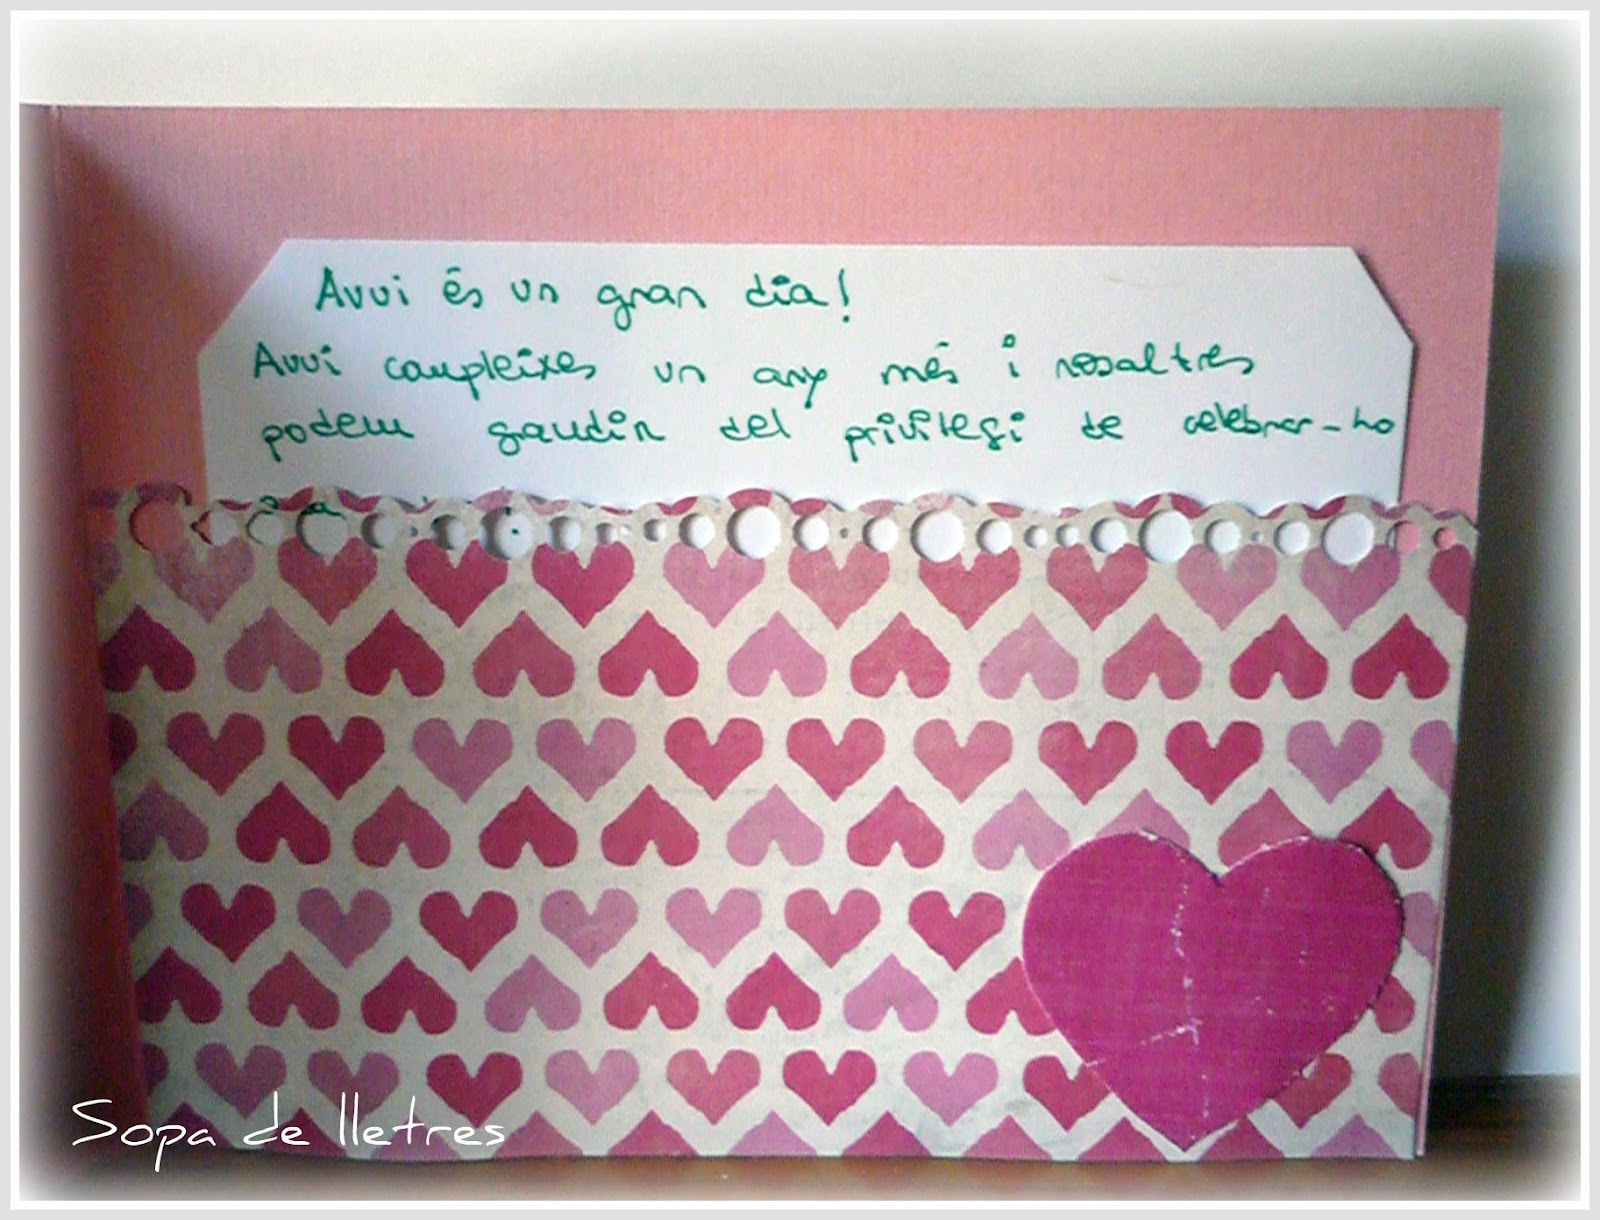 Avui és un gran dia!
Avui compleixes un any més i nosaltres
podem gaudir del privilegi de celebrar-ho
Sopa de lletres